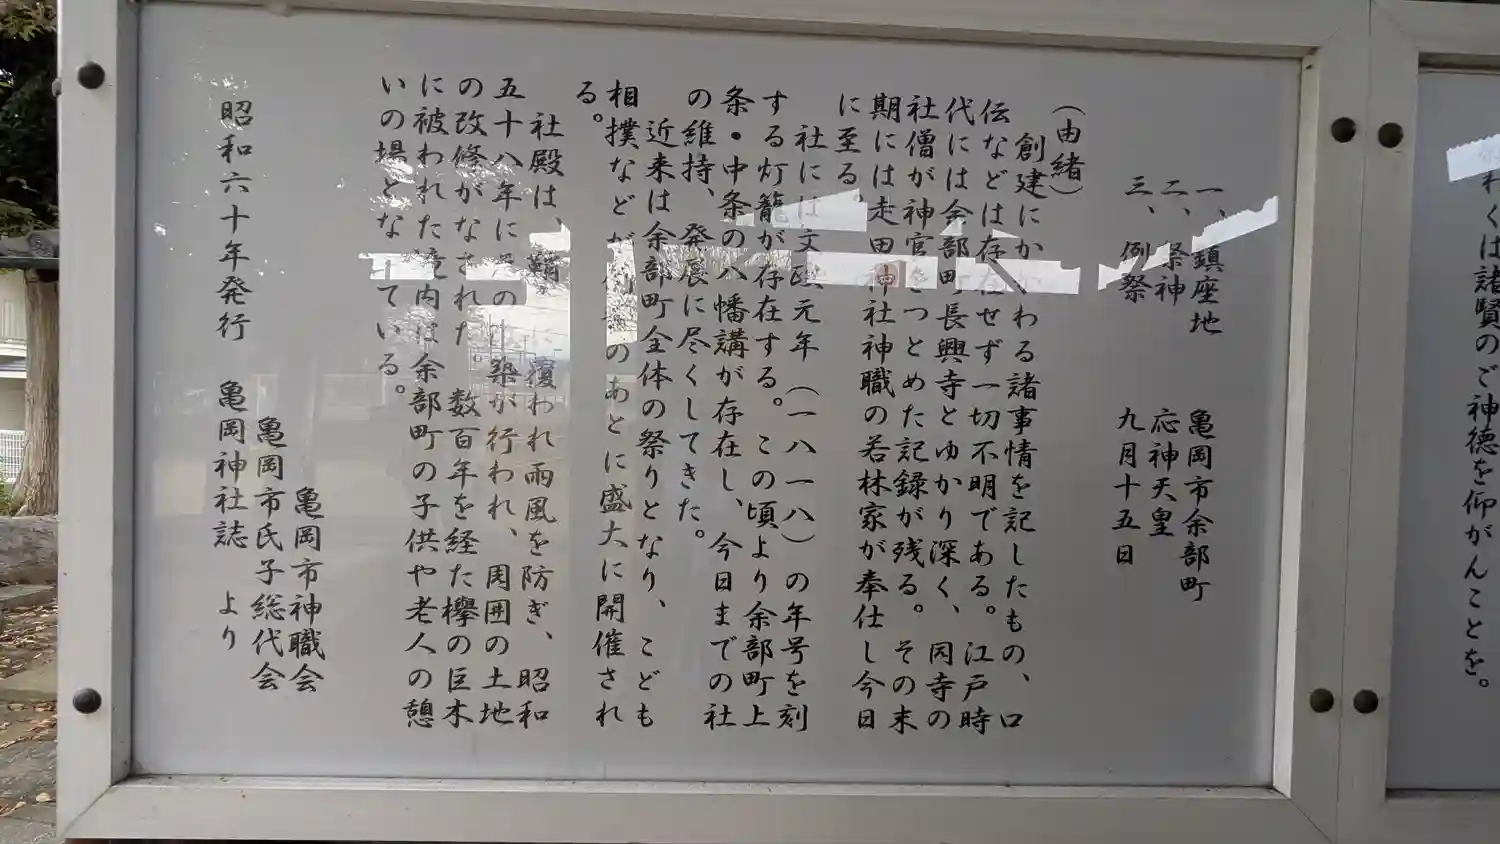 一、鎮座地　亀岡市余部町
二、祭神　応神天皇
三、例祭　九月十五日
（由緒）
創建にかかわる諸事情を記したもの、口
伝などは存在せず一切不明である。江戸時
代には余部町長興寺とゆかり深く、同寺の
社僧が神官をつとめた記録が残る。その末
期には走田神社神職の若林家が奉仕し今日
に至る。
社には文政元年（一八一八）の年号を刻
する灯籠が存在する。この頃より余部町上
条・中条の八幡講が存在し、今日までの社
の維持、発展に尽くしてきた。
近来は余部町全体の祭りとなり、こども
相撲などが のあとに盛大に開催され
る。
社殿は、鞘 覆われ雨風を防ぎ、昭和
五十八年に の 築が行われ、周囲の土地
の改修がなされた。数百年を経た欅の巨木
に被われた境内は余部町の子供や老人の憩
いの場となっている。
昭和六十年発行　亀岡神社誌　より
亀岡市氏子総代会
亀岡市神職会
わくは諸賢のご神徳を仰がんことを。